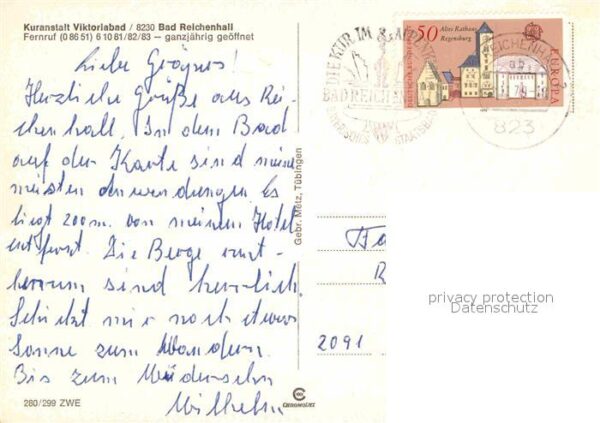 Kuranstalt Viktoriabad / 8230 Bad Reichenhall
Fernruf (0 86 51) 6 10 81/82/83 – ganzjährig geöffnet
Liebe
Herzliche Grüße aus Rei-
chenhall. In dem Bad
auf der Karte sind meine
meisten Anwendungen. Es
liegt 200 m. von meinem Hotel
entfernt. Die Berge rund-
herrum sind herrlich.
Schickt mir noch etwas
Sonne zum Wandern.
Bis zum Wiedersehn
Wilhelm
280/299 ZWE
Gebr. Metz, Tübingen
CHROMOLUX
DIE KUR IM
BAD REICHENHALL
STAATSBAD
50 Altes Rathaus
Regensburg
EUROPA
REICHENHALL
823
2091
privacy protection
Datenschutz